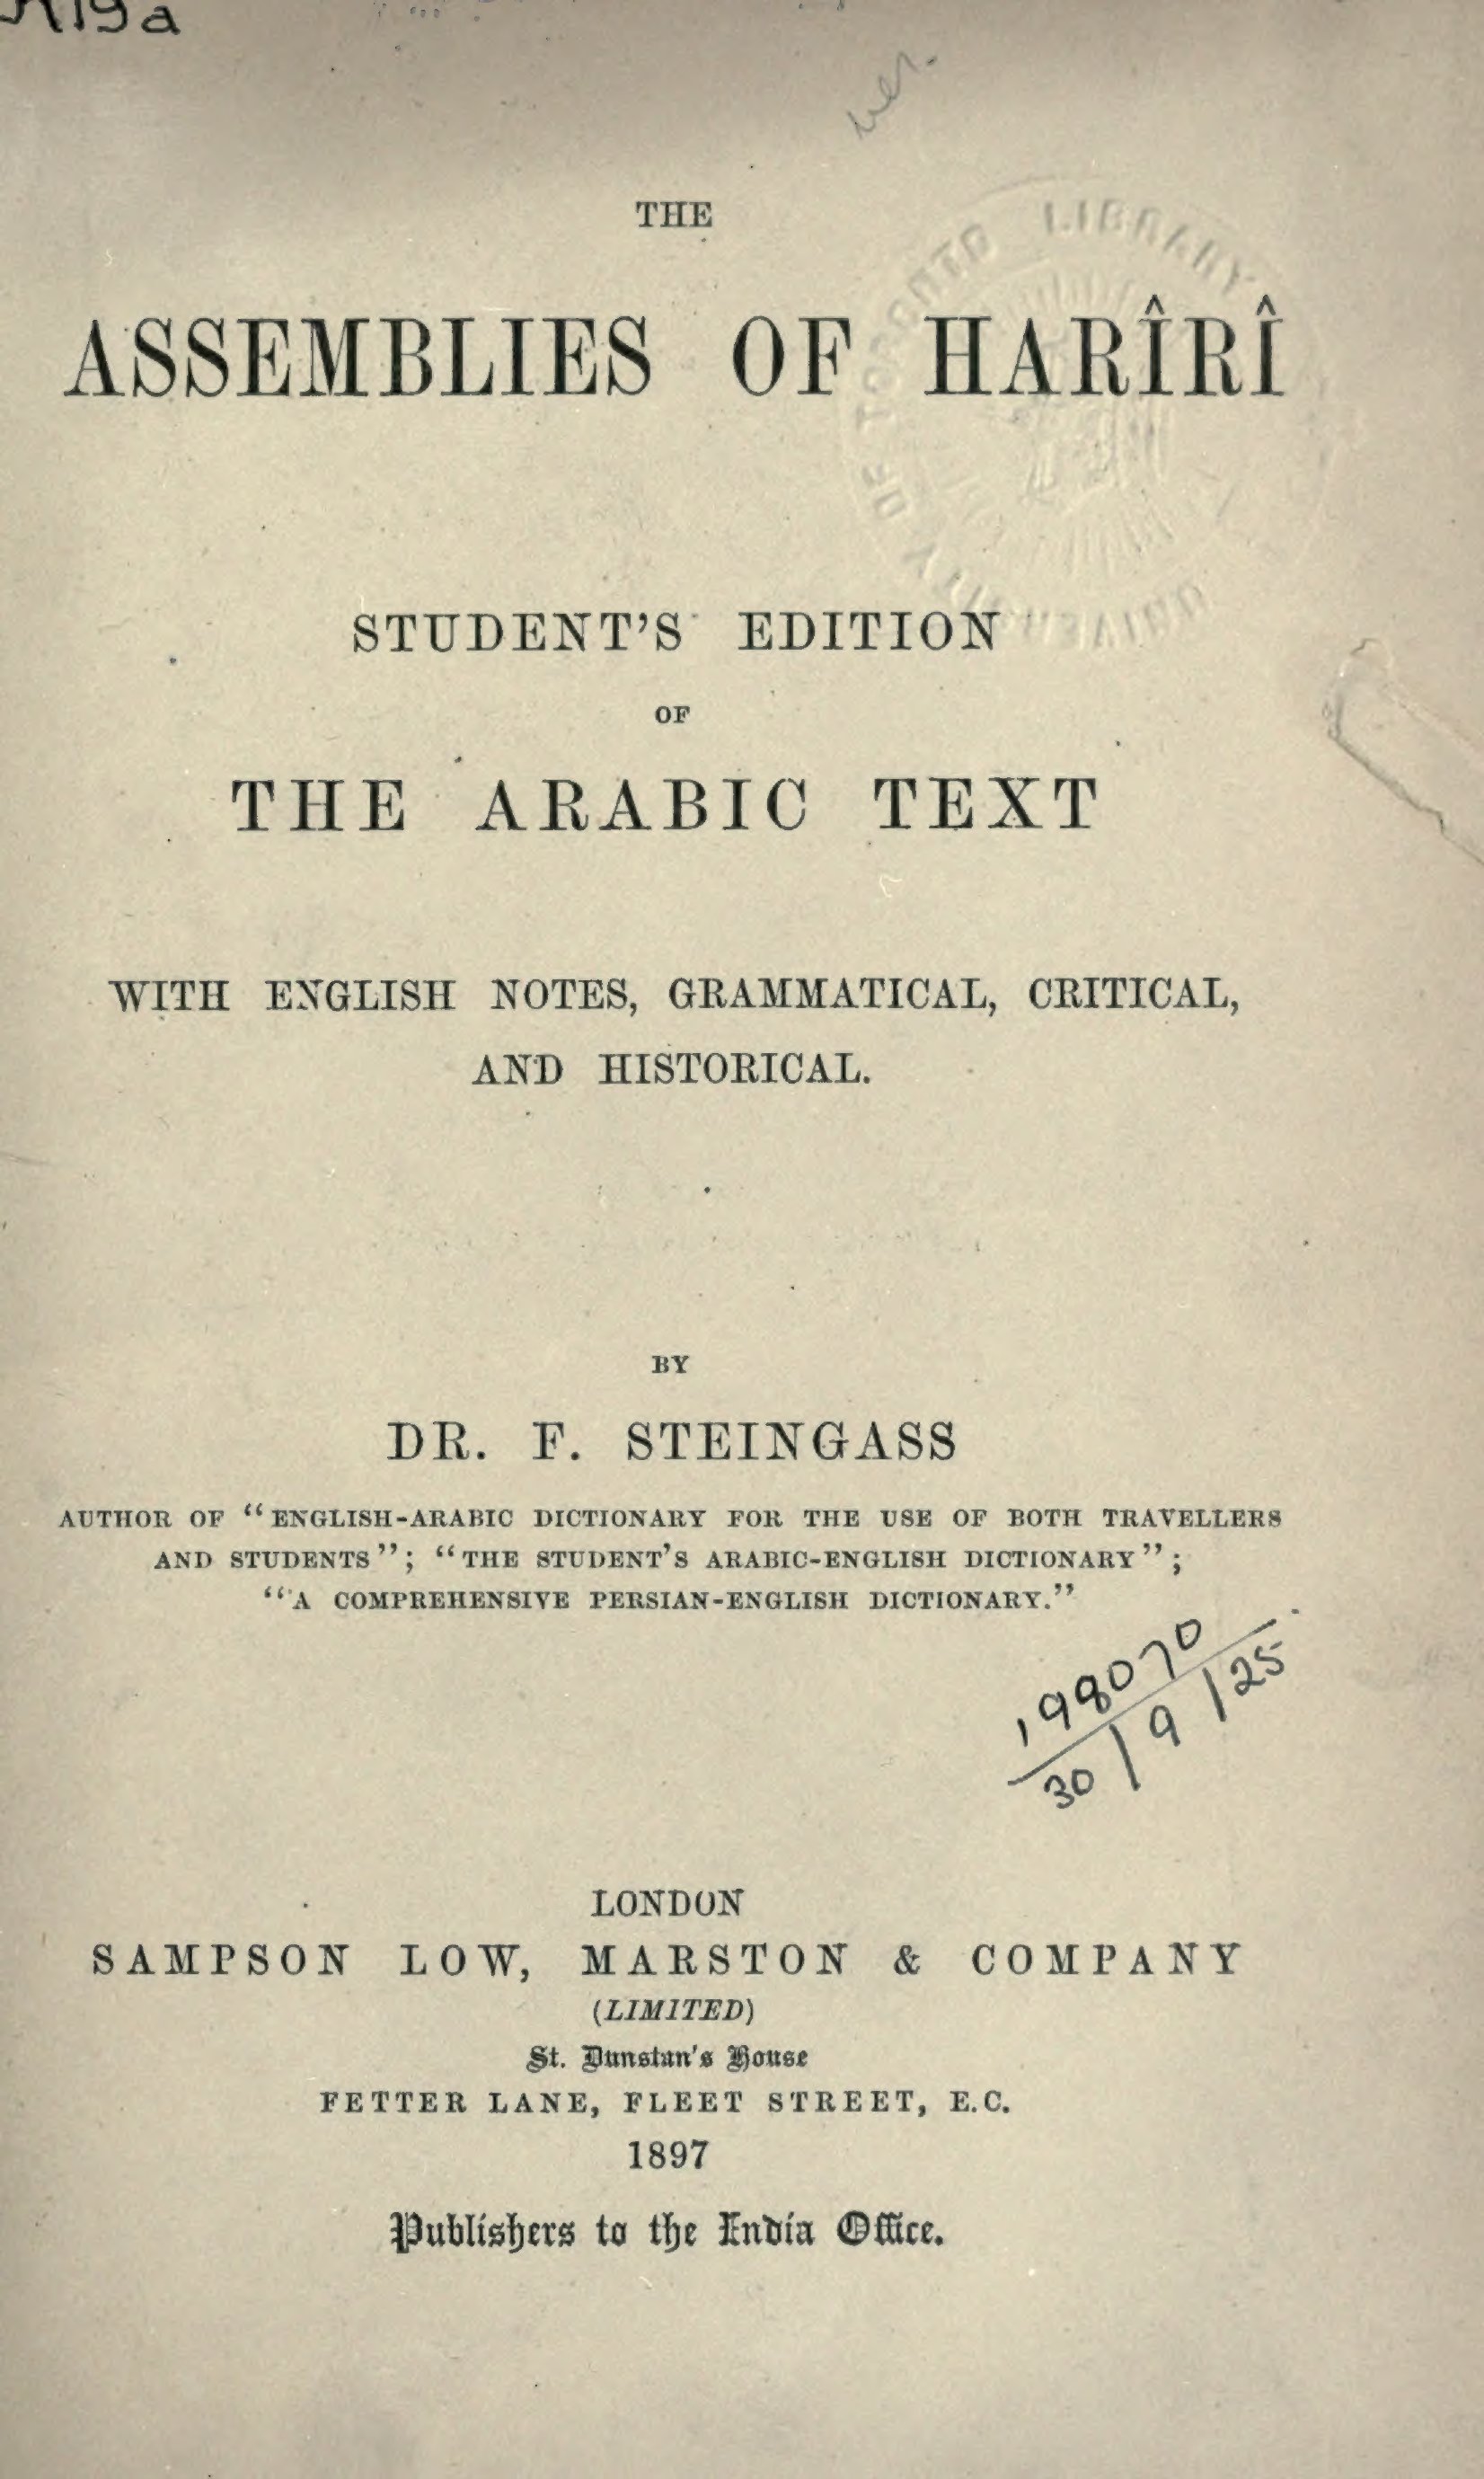 THE
ASSEMBLIES OF HARÎRÎ
STUDENT'S EDITION
OF
THE ARABIC TEXT
WITH ENGLISH NOTES, GRAMMATICAL, CRITICAL,
AND HISTORICAL.
BY
DR. F. STEINGASS
AUTHOR OF "ENGLISH-ARABIC DICTIONARY FOR THE USE OF BOTH TRAVELLERS
AND STUDENTS"; "THE STUDENT'S ARABIC-ENGLISH DICTIONARY";
"A COMPREHENSIVE PERSIAN-ENGLISH DICTIONARY."
198070
30/9/25
LONDON
SAMPSON LOW, MARSTON & COMPANY
(LIMITED)
St. Dunstan's House
FETTER LANE, FLEET STREET, E.C.
1897
Publishers to the India Office.